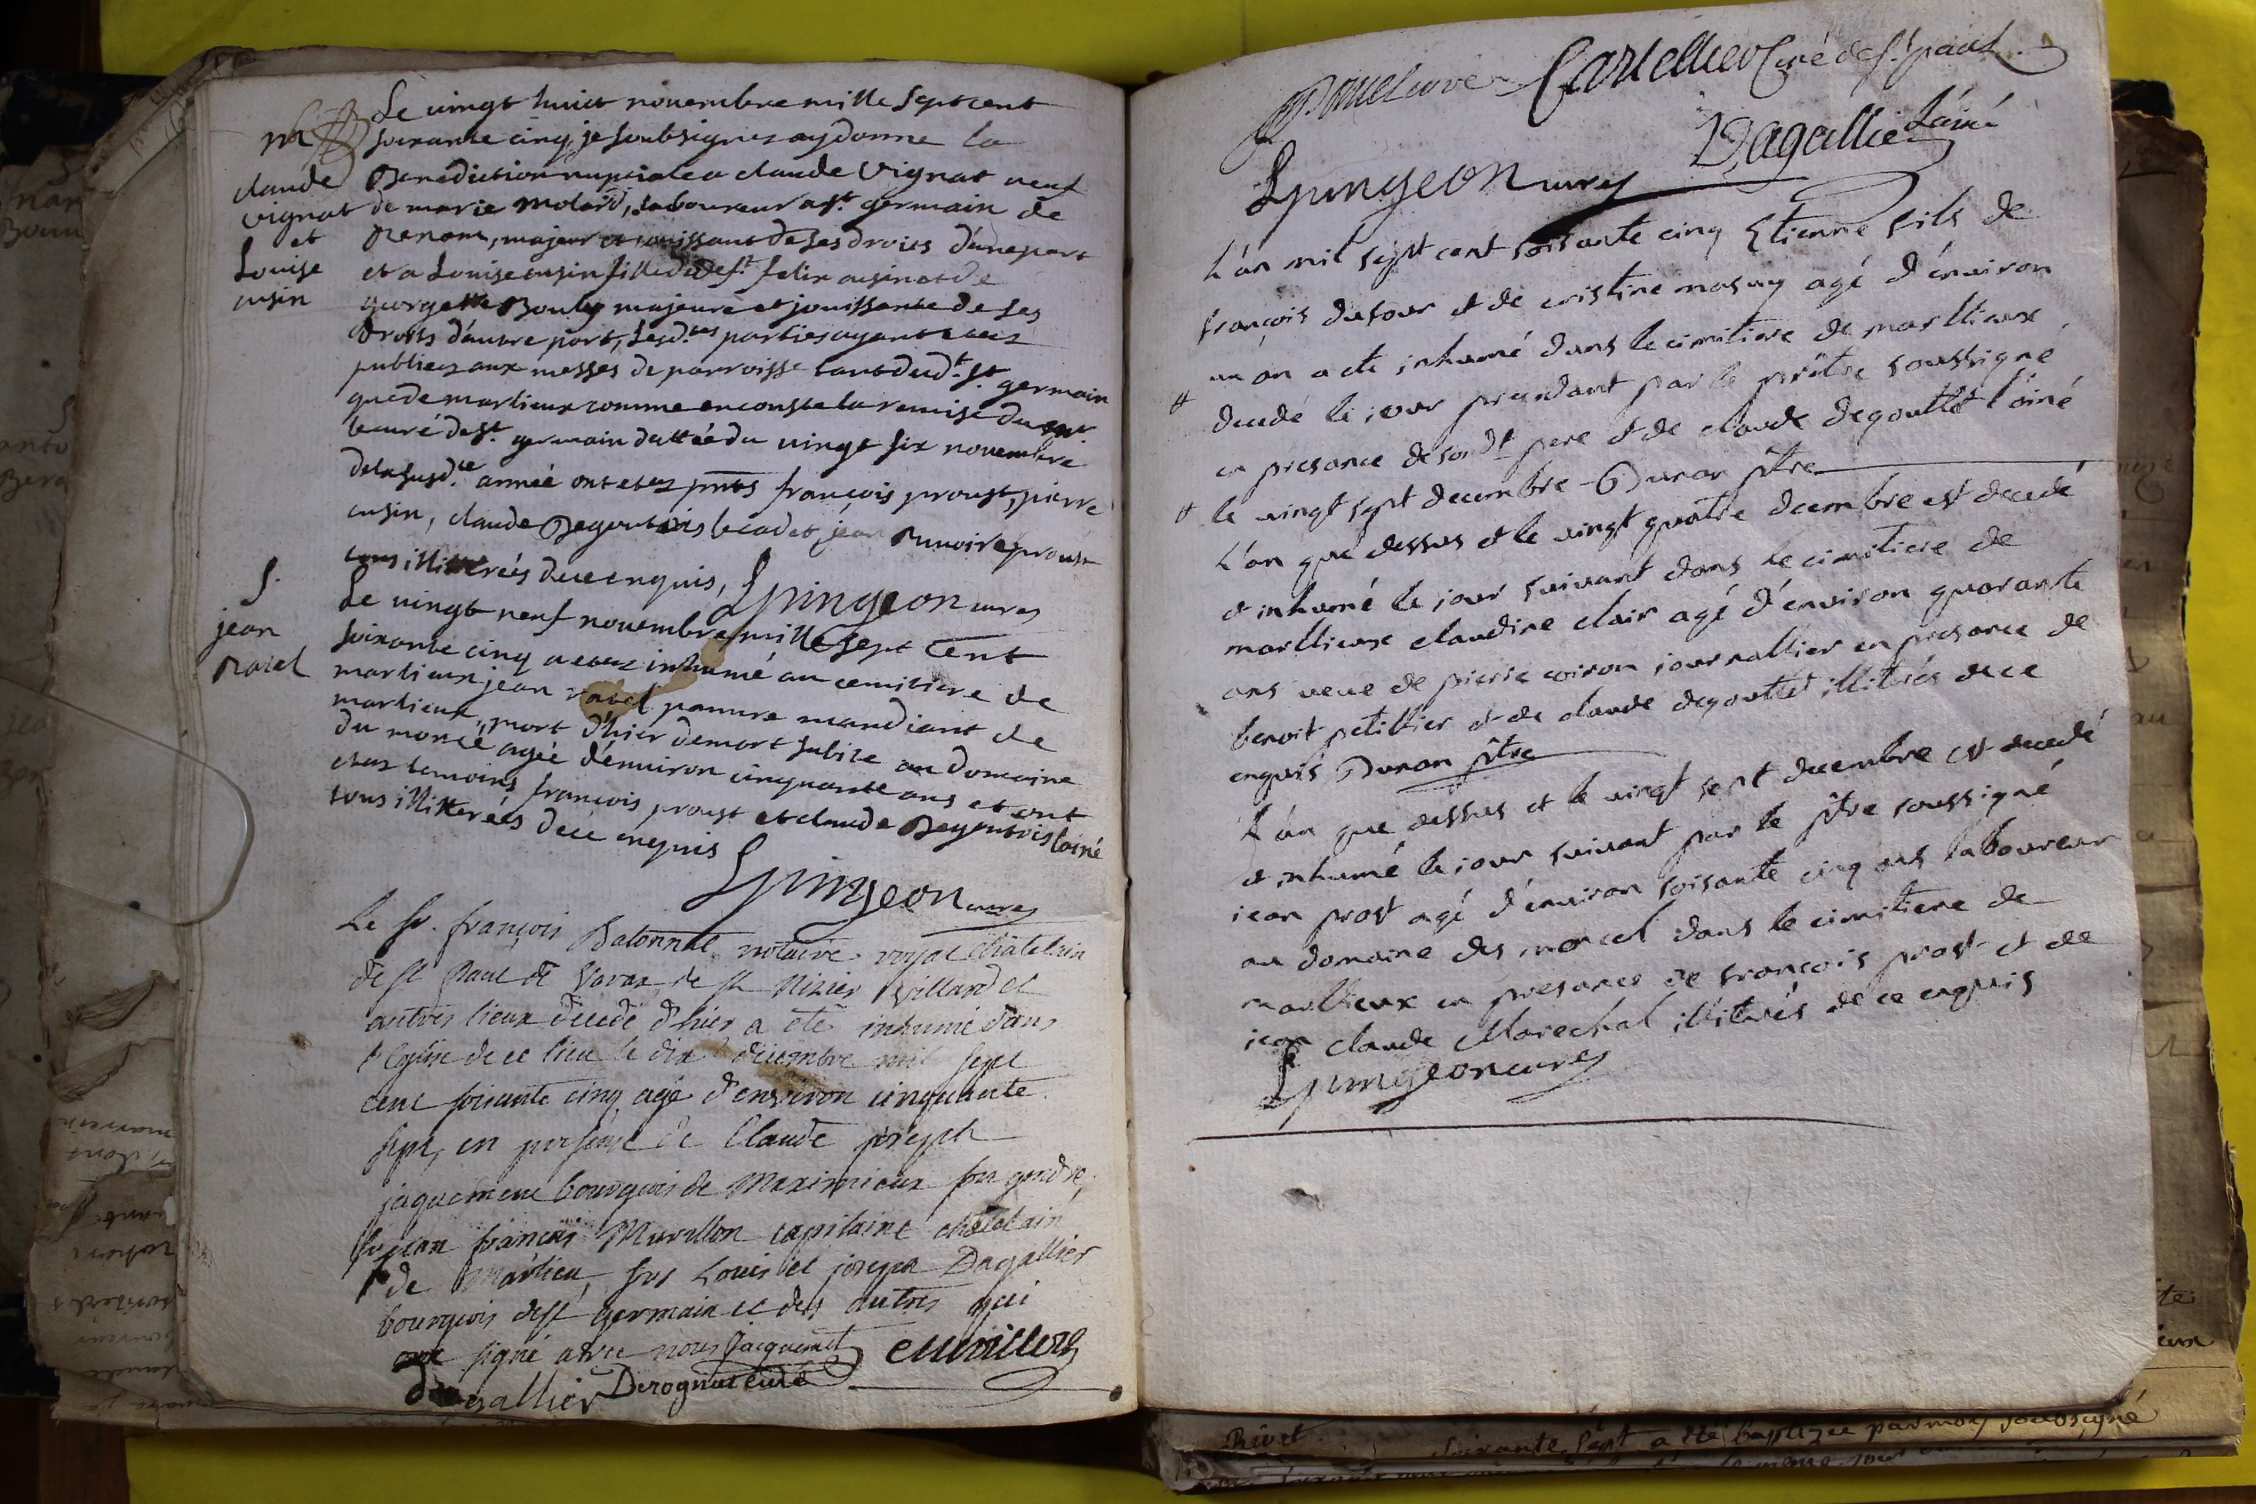 Le vingt huict novembre mille sept cent
soixante cinq, je soubsignez ay donné la
Benediction nupciale a claude vignat veuf
de marie molard, laboureur a st. germain de
Renom, majeur et jouissant de ses droits d'une part
et a Louise cusin fille de deft. felix cusin et de
georgette Bouly majeure et jouissante de ses
droits d'autre part, Lesd.tes parties ayant etez
publiez aux messes de parroisse tant dud.t st. germain
que de marlieux comme en conste la remise du
curé de st. germain dattée du vingt six novembre
de la susd.te année ont etez pnts françois proust, pierre
cusin, claude Degoutois le cadet, jean proust
tous illitterés de ce enquis, Spingeon curez
m
claude
vignat
et
Louise
cusin
S.
jean
ravel
Le vingt neuf novembre mille sept cent
soixante cinq a etez inhumé au cemitiere de
marlieux jean ravel pauvre mandiant de
marlieux, mort d'hier de mort subite au domaine
du moncé agée d'environ cinquante ans et ont
etez temoins françois proust et claude Degoutois lainé
tous illitterés de ce enquis
Spingeon curez
Le sr. françois Batonnet notaire royal châtelain
de st Paul de Varax, de st Nizier Villard et
autres lieux décédé d'hier a été inhumé dans
l'eglise de ce lieu le dix décembre mil sept
cent soixante cinq agé d'environ cinquante
sept, en presence de Claude joseph
jaquemet bourgeois de Maximieux son gendre,
sr jean françois Muvillon capitaine châtelain
de Marlieu, srs Louis et joseph Dagallier
bourgeois de st germain et des autres qui
ont signé avec nous Jacquemet
Dagallier Derognat curé
Cartellier Curé de st. paul
Spingeon curez Dagallier L'ainé
L'an mil sept cent soisante cinq Etienne fils de
françois dufour et de cristine masuy agé d'environ
un an a eté inhumé dans le cimitiere de marllieux
decedé le iour precendant par le prêtre soussigné
en presance de sond.t pere et de claude degouttet l'ainé
# le vingt sept decembre - Duran ptre
L'an que dessus et le vingt quatre decembre est decedé
et inhumé le iour suivant dans le cimitiere de
marllieux claudine clair agé d'environ quarante
ans veuve de pierre coiron iournallier en presance de
benoit petillier et de claude degouttet illitrés de ce
enquis Duran ptre
L'an que dessus et le vingt sept decembre est decedé
et inhumé le iour suivant par le ptre soussigné
iean prost agé d'environ soisante cinq ans laboureur
au domaine des moncel dans le cimitiere de
marllieux en presance de françois prost et de
iean claude Marechal illitrés de ce enquis
Spingeon curez
Rivet
soixante sept a été baptizée par moy soussigné